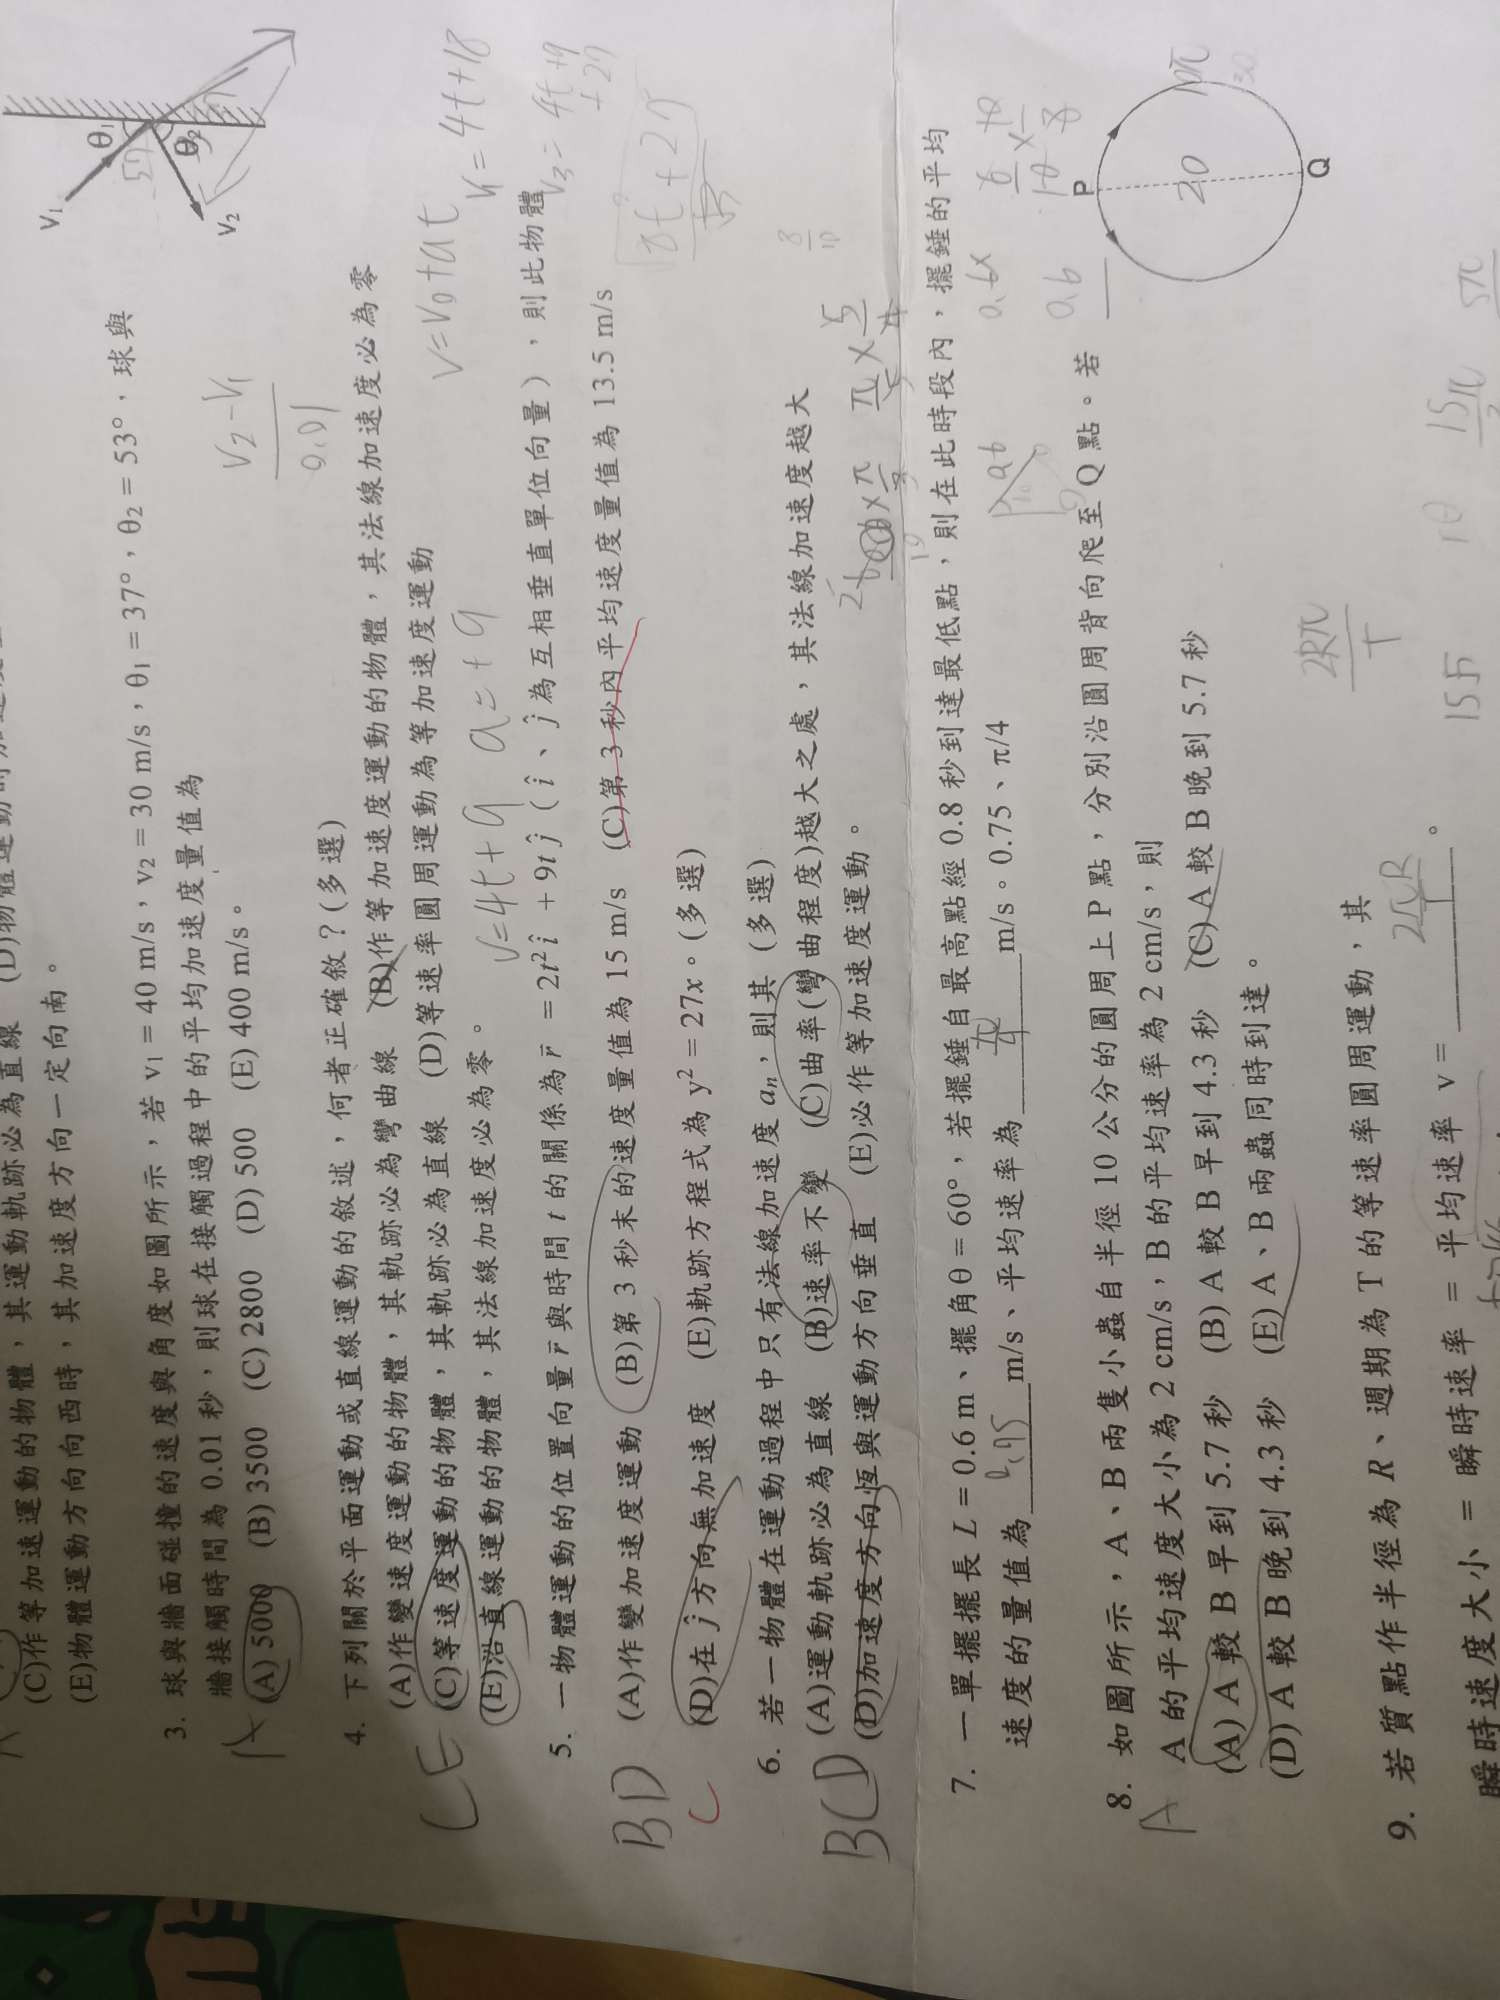 (C)作等加速運動的物體，其運動軌跡必為直線
(E)物體運動方向向西時，其加速度方向一定向南。
3. 球與牆面碰撞的速度與角度如圖所示，若 v₁ = 40 m/s，v₂ = 30 m/s，θ₁ = 37°，θ₂ = 53°，球與
牆接觸時間為 0.01 秒，則球在接觸過程中的平均加速度量值為
A (A) 5000 (B) 3500 (C) 2800 (D) 500 (E) 400 m/s。
v₁
θ₁
θ₂
v₂
V₂-V₁
0.01
4. 下列關於平面運動或直線運動的敘述，何者正確敘？(多選)
(A)作變速度運動的物體，其軌跡必為彎曲線 (B)作等加速度運動的物體，其法線加速度必為零
(C)等速度運動的物體，其軌跡必為直線 (D)等速率圓周運動為等加速度運動
(E)沿直線運動的物體，其法線加速度必為零。
CE
V=V₀+at
V=4t+9 a=+9
V=4t+18
V₃=4t+9
+27
5. 一物體運動的位置向量r̄與時間 t 的關係為r̄ = 2t²î + 9tĵ（î、ĵ為互相垂直單位向量），則此物體
(A)作變加速度運動 (B)第 3 秒末的速度量值為 15 m/s (C)第 3 秒內平均速度量值為 13.5 m/s
(D)在ĵ方向無加速度 (E)軌跡方程式為 y² = 27x。(多選)
BD
C
6. 若一物體在運動過程中只有法線加速度 aₙ，則其 (多選)
(A)運動軌跡必為直線 (B)速率不變 (C)曲率(彎曲程度)越大之處，其法線加速度越大
(D)加速度方向恆與運動方向垂直 (E)必作等加速度運動。
BCD
8
10
7. 一單擺擺長 L = 0.6 m、擺角θ = 60°，若擺錘自最高點經 0.8 秒到達最低點，則在此時段內，擺錘的平均
速度的量值為 m/s、平均速率為 π/4 m/s。0.75、π/4
0.6
8. 如圖所示，A、B 兩隻小蟲自半徑 10 公分的圓周上 P 點，分別沿圓周背向爬至 Q 點。若
A 的平均速度大小為 2 cm/s，B 的平均速率為 2 cm/s，則
(A) A 較 B 早到 5.7 秒 (B) A 較 B 早到 4.3 秒 (C) A 較 B 晚到 5.7 秒
(D) A 較 B 晚到 4.3 秒 (E) A、B 兩蟲同時到達。
A
P
20
10π
Q
9. 若質點作半徑為 R、週期為 T 的等速率圓周運動，其
瞬時速度大小 = 瞬時速率 = 平均速率 v = 。
2πR
T
2Rπ
T